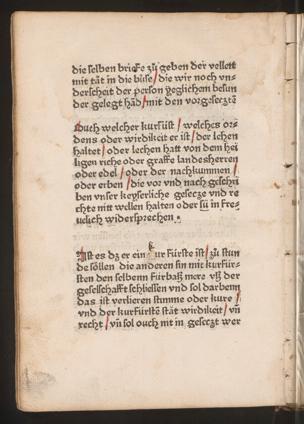 die selben briefe zů geben der vellott
mit tät in die buse / die wir noch vn-
derscheit der person yeglichem besun
der gelegt hād / mit den vorgesecztē
Auch welcher kurfüst / welches or-
dens oder wirdikeit er ist / der lehen
haltet / oder lechen hatt von dem hei
ligen riche oder graffe landesherren
oder edel / oder der nachkummen /
oder erben / die vor vnd nach geschri
ben vnser keyserliche gesecze vnd re
chte nitt wellen halten oder sü in fre-
uelich widersprechen .
Ist es dz er ein kur fürste ist / zů stun
de söllen die anderen sin mit kurfür-
sten den selbenn fürbaß mere vß der
gesellschafft schliessen vnd sol darbenn
das ist verlieren stimme oder kure /
vnd der kurfürstē stät wirdikeit / vn̄
recht / vn̄ sol ouch nit in geseczt wer